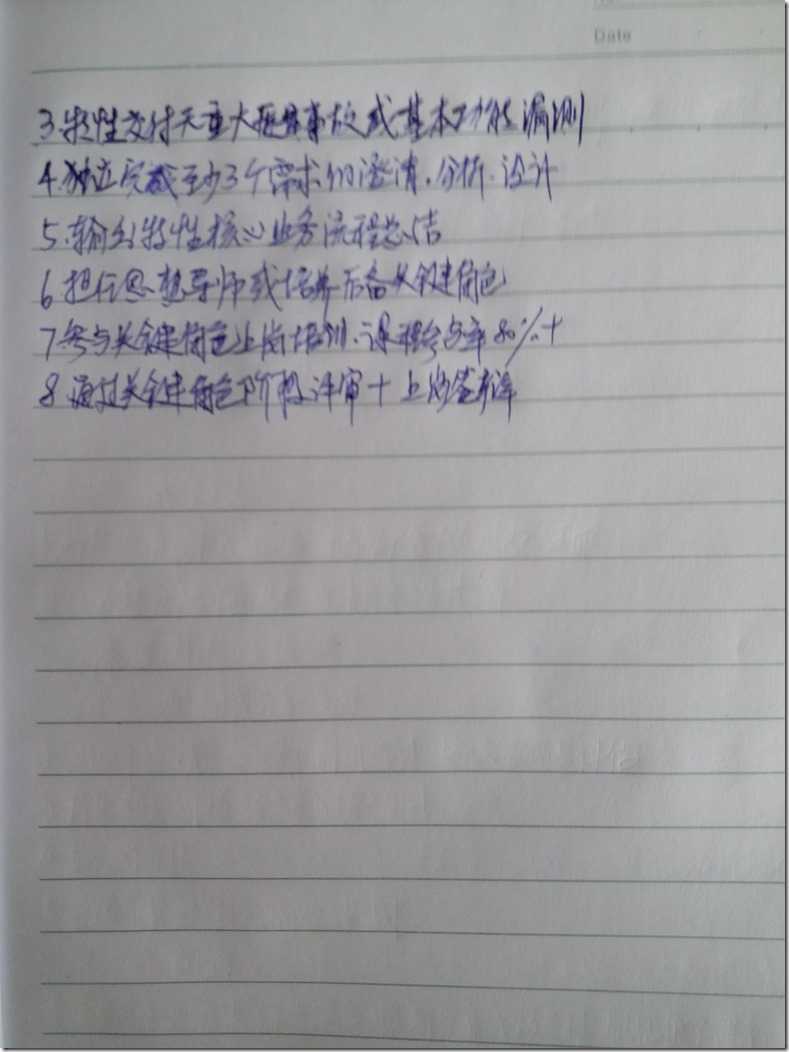 Date
3.特性交付无重大质量事故或基本功能漏测
4.独立完成至少3个需求的澄清.分析.设计
5.输出特性核心业务流程总结
6.担任思想导师或培养后备关键角色
7.参与关键角色上岗培训.课程参与率80%+
8.通过关键角色阶段评审+上岗答辩